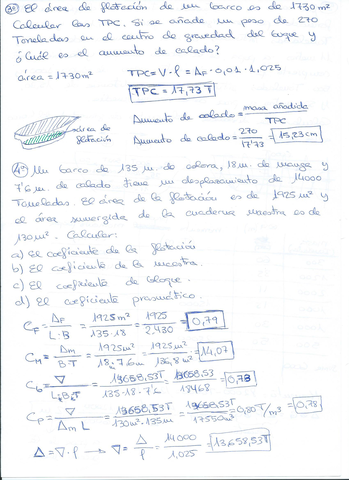 3º) El área de flotación de un barco es de 1730 m²
Calcular las TPC. Si se añade un peso de 270
Toneladas en el centro de gravedad del buque y
¿Cuál es el aumento de calado?
área = 1730 m² TPC = V · ρ = AF · 0,01 · 1,025
TPC = 17,73 T
área de
flotación
Aumento de calado = masa añadida / TPC
Aumento de calado = 270 / 17'73 = 15,23 cm
4º) Un barco de 135 m. de eslora, 18 m. de manga y
7'6 m. de calado tiene un desplazamiento de 14000
Toneladas. El área de la flotación es de 1925 m² y
el área sumergida de la cuaderna maestra es de
130 m². Calcular:
a) El coeficiente de la flotación
b) El coeficiente de la maestra.
c) El coeficiente de bloque.
d) El coeficiente prismático.
CF = AF / L · B = 1925 m² / 135 · 18 = 1925 / 2.430 = 0,79
CM = Am / B · T = 1925 m² / 18 · 7'6 m = 1925 m² / 136,8 m² = 14,07
Cb = ∇ / L · B · T = 13658,53T / 135 · 18 · 7'6 = 13658,53 / 18468 = 0,73
Cp = ∇ / Am L = 13658,53T / 130 m² · 135 m = 13658,53T / 17550 m³ = 0,80 T/m³ = 0,78
Δ = ∇ · ρ → ∇ = Δ / ρ = 14000 / 1,025 = 13,658,53T